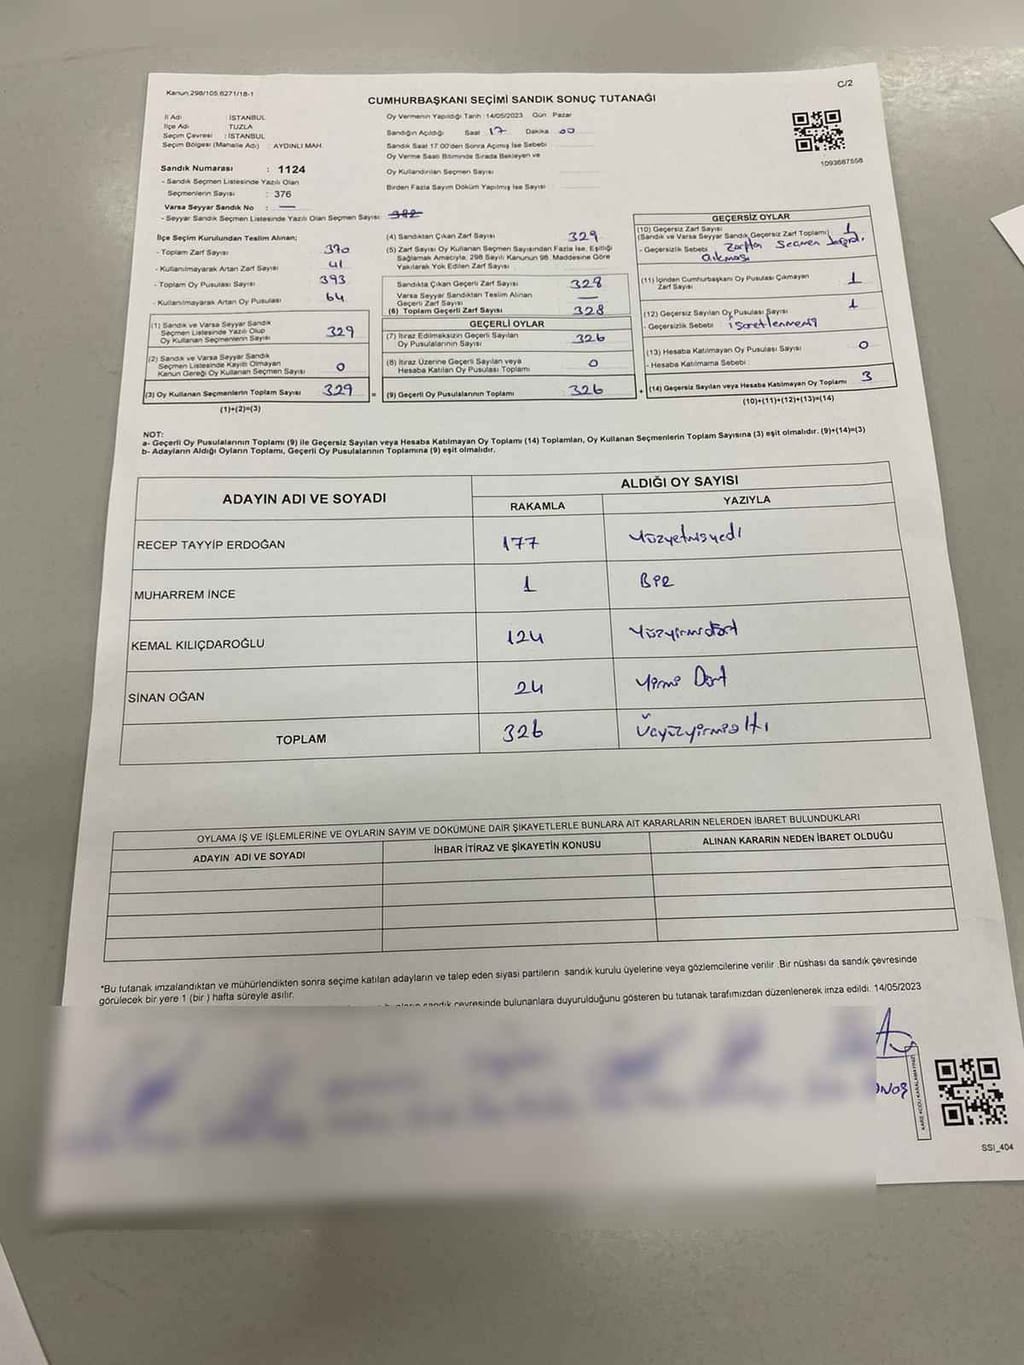 Kanun 298/105.6271/18-1
C/2
CUMHURBAŞKANI SEÇİMİ SANDIK SONUÇ TUTANAĞI
İl Adı : İSTANBUL
İlçe Adı : TUZLA
Seçim Çevresi : İSTANBUL
Seçim Bölgesi (Mahalle Adı) : AYDINLI MAH.
Sandık Numarası : 1124
- Sandık Seçmen Listesinde Yazılı Olan
Seçmenlerin Sayısı : 376
Varsa Seyyar Sandık No : —
- Seyyar Sandık Seçmen Listesinde Yazılı Olan Seçmen Sayısı:
Oy Vermenin Yapıldığı Tarih :14/05/2023 Gün Pazar
Sandığın Açıldığı Saat 17 Dakika 00
Sandık Saat 17:00'den Sonra Açılmış İse Sebebi
Oy Verme Saati Bitiminde Sırada Bekleyen ve
Oy Kullandırılan Seçmen Sayısı
Birden Fazla Sayım Döküm Yapılmış İse Sayısı
1093687558
İlçe Seçim Kurulundan Teslim Alınan;
- Toplam Zarf Sayısı 370
- Kullanılmayarak Artan Zarf Sayısı 41
- Toplam Oy Pusulası Sayısı 393
- Kullanılmayarak Artan Oy Pusulası 64
(1) Sandık ve Varsa Seyyar Sandık
Seçmen Listesinde Yazılı Olup
Oy Kullanan Seçmenlerin Sayısı 329
(2) Sandık ve Varsa Seyyar Sandık
Seçmen Listesinde Kayıtlı Olmayan
Kanun Gereği Oy Kullanan Seçmen Sayısı 0
(3) Oy Kullanan Seçmenlerin Toplam Sayısı 329 =
(1)+(2)=(3)
(4) Sandıktan Çıkan Zarf Sayısı 329
(5) Zarf Sayısı Oy Kullanan Seçmen Sayısından Fazla İse, Eşitliği
Sağlamak Amacıyla, 298 Sayılı Kanunun 98. Maddesine Göre
Yakılarak Yok Edilen Zarf Sayısı
Sandıkta Çıkan Geçerli Zarf Sayısı 328
Varsa Seyyar Sandıktan Teslim Alınan
Geçerli Zarf Sayısı —
(6) Toplam Geçerli Zarf Sayısı 328
GEÇERLİ OYLAR
(7) İtiraz Edilmeksizin Geçerli Sayılan
Oy Pusulalarının Sayısı 326
(8) İtiraz Üzerine Geçerli Sayılan veya
Hesaba Katılan Oy Pusulası Toplamı 0
(9) Geçerli Oy Pusulalarının Toplamı 326 +
GEÇERSİZ OYLAR
(10) Geçersiz Zarf Sayısı
(Sandık ve Varsa Seyyar Sandık Geçersiz Zarf Toplamı) 1
- Geçersizlik Sebebi Zarftan Seçmen
çıkması
(11) İçinden Cumhurbaşkanı Oy Pusulası Çıkmayan
Zarf Sayısı 1
(12) Geçersiz Sayılan Oy Pusulası Sayısı 1
- Geçersizlik Sebebi :
(13) Hesaba Katılmayan Oy Pusulası Sayısı 0
- Hesaba Katılmama Sebebi :
(14) Geçersiz Sayılan veya Hesaba Katılmayan Oy Toplamı 3
(10)+(11)+(12)+(13)=(14)
NOT:
a- Geçerli Oy Pusulalarının Toplamı (9) ile Geçersiz Sayılan veya Hesaba Katılmayan Oy Toplamı (14) Toplamları, Oy Kullanan Seçmenlerin Toplam Sayısına (3) eşit olmalıdır. (9)+(14)=(3)
b- Adayların Aldığı Oyların Toplamı, Geçerli Oy Pusulalarının Toplamına (9) eşit olmalıdır.
ADAYIN ADI VE SOYADI ALDIĞI OY SAYISI
RAKAMLA YAZIYLA
RECEP TAYYİP ERDOĞAN 177 Yüzyetmişyedi
MUHARREM İNCE 1 Bir
KEMAL KILIÇDAROĞLU 124 Yüzyirmidört
SİNAN OĞAN 24 Yirmi Dört
TOPLAM 326 Üçyüzyirmialtı
OYLAMA İŞ VE İŞLEMLERİNE VE OYLARIN SAYIM VE DÖKÜMÜNE DAİR ŞİKAYETLERLE BUNLARA AİT KARARLARIN NELERDEN İBARET BULUNDUKLARI
ADAYIN ADI VE SOYADI İHBAR İTİRAZ VE ŞİKAYETİN KONUSU ALINAN KARARIN NEDEN İBARET OLDUĞU
*Bu tutanak imzalandıktan ve mühürlendikten sonra seçime katılan adayların ve talep eden siyasi partilerin sandık kurulu üyelerine veya gözlemcilerine verilir .Bir nüshası da sandık çevresinde
görülecek bir yere 1 (bir ) hafta süreyle asılır.
sandık çevresinde bulunanlara duyurulduğunu gösteren bu tutanak tarafımızdan düzenlenerek imza edildi. 14/05/2023
KARE KODU KARALAMAYINIZ
SSI_404